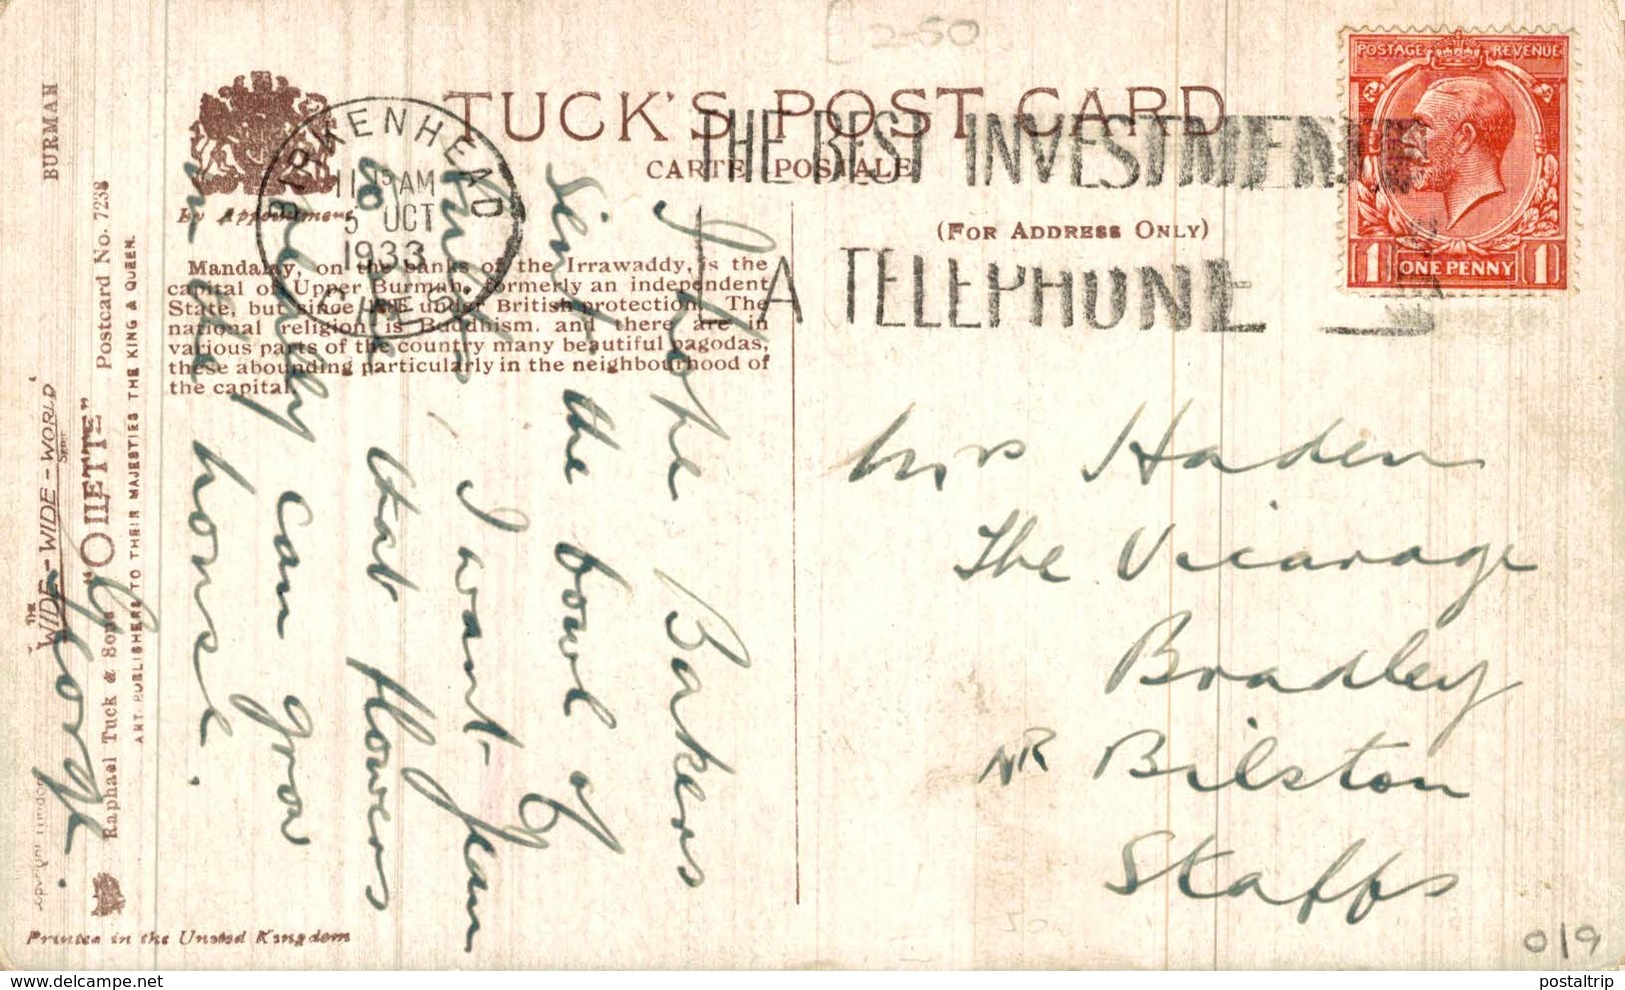 2-50
TUCK'S POST CARD
CARTE POSTALE
(FOR ADDRESS ONLY)
By Appointment
Mandalay, on the banks of the Irrawaddy, is the
capital of Upper Burmah, formerly an independent
State, but since 1885 under British protection. The
national religion is Buddhism, and there are in
various parts of the country many beautiful pagodas,
these abounding particularly in the neighbourhood of
the capital.
BIRKENHEAD
11 15 AM
5 OCT
1933
CHES.
THE BEST INVESTMENT
IS A TELEPHONE
POSTAGE REVENUE
1 ONE PENNY 1
BURMAH
THE
WIDE-WIDE-WORLD
SERIES
"OILETTE" Postcard No. 7238
Raphael Tuck & Sons
ART PUBLISHERS TO THEIR MAJESTIES THE KING & QUEEN.
Copyright London
Printed in the United Kingdom
I hope Bakers
sent the bowl of
fruit, I want Jean
to that flowers
she only can grow
in the house.
George.
Mrs Haden
The Vicarage
Bradley
NR Bilston
Staffs
019
postaltrip